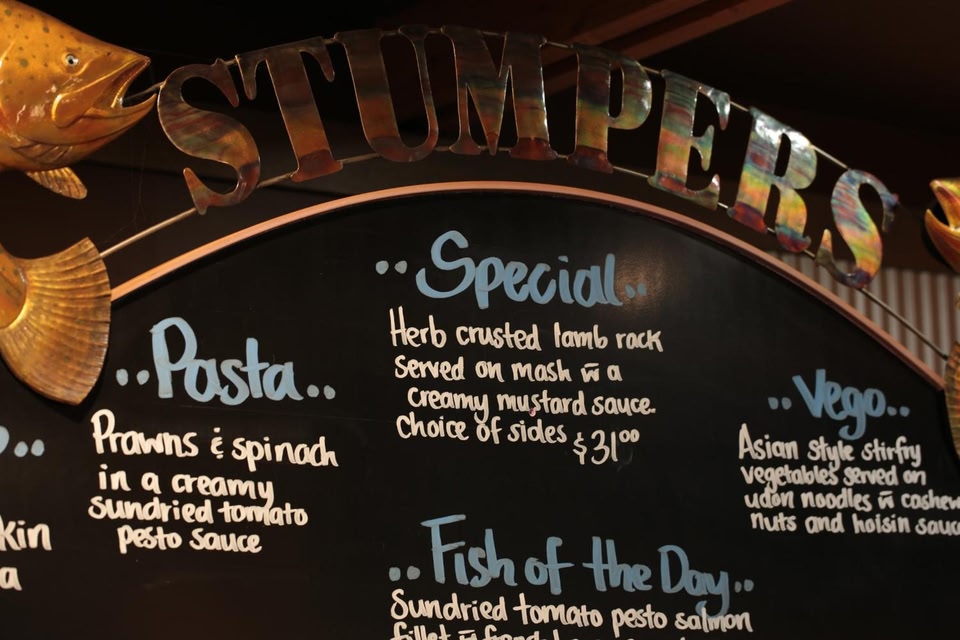 STUMPERS
..Special..
Herb crusted lamb rack
Served on mash w̄ a
creamy mustard sauce.
Choice of sides $31⁰⁰
..Pasta..
Prawns & spinach
in a creamy
sundried tomato
pesto sauce
..Vego..
Asian style stirfry
vegetables served on
udon noodles w̄ cashew
nuts and hoisin sauce
..Fish of the Day..
Sundried tomato pesto salmon
fillet w̄